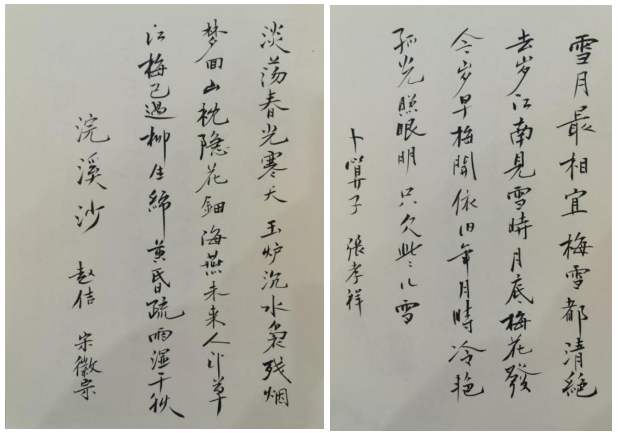 淡荡春光寒天 玉炉沉水袅残烟
梦回山枕隐花钿海燕未来人斗草
江梅已过柳生綿黄昏疏雨湿千秋
浣溪沙 赵佶 宋徽宗
雪月最相宜梅雪都清絶
去岁江南見雪時月底梅花發
今岁早梅開依旧年月時冷艳
孤光照眼明只欠些々儿雪
卜算子 張孝祥